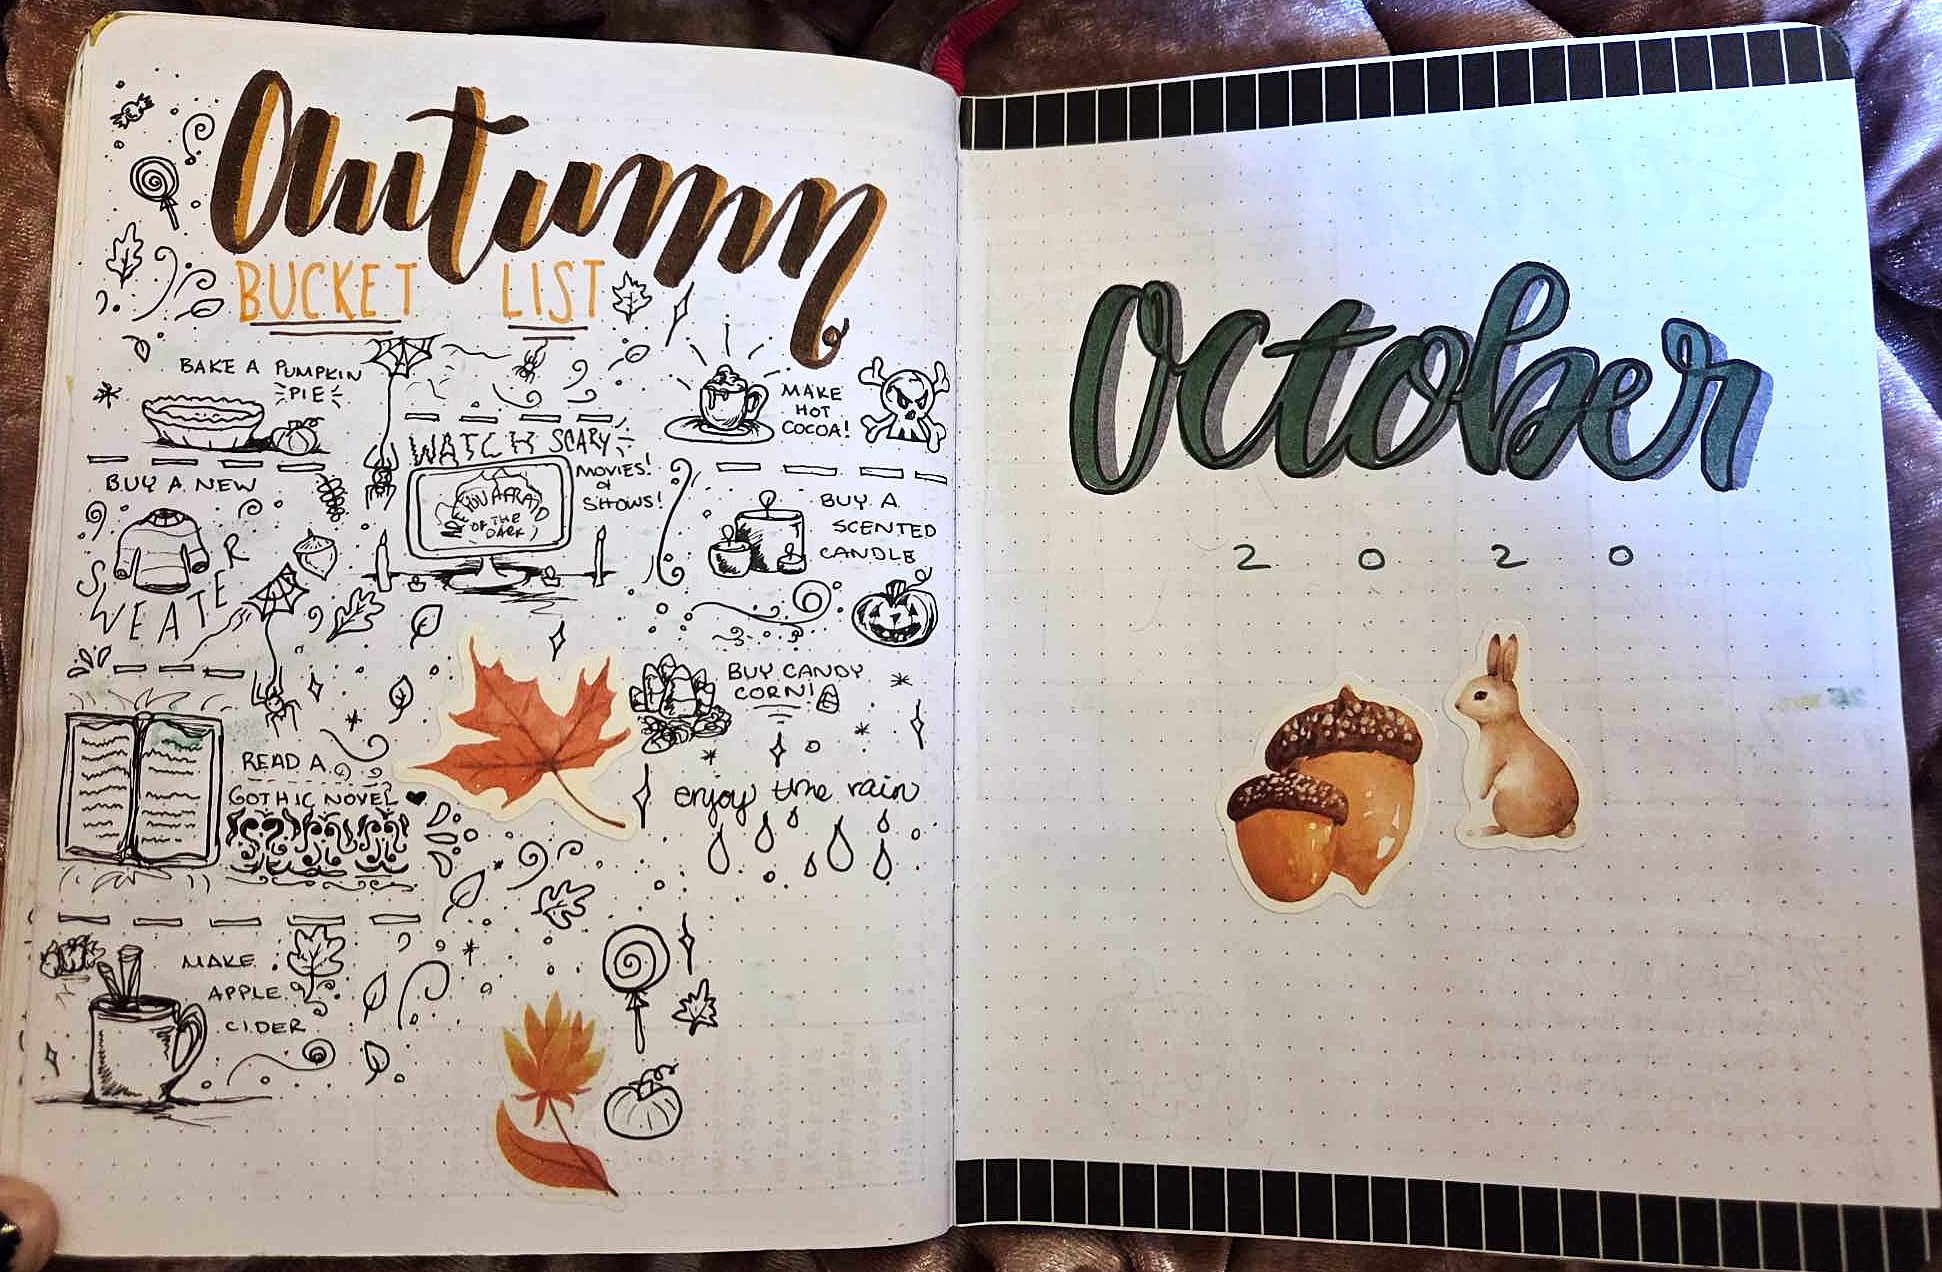 Autumn
BUCKET LIST
BAKE A PUMPKIN
PIE
WATCH SCARY
MOVIES!
SHOWS!
AFRAID
OF THE
DARK
MAKE
HOT
COCOA!
BUY A NEW
SWEATER
BUY A
SCENTED
CANDLE
BUY CANDY
CORN!
READ A
GOTHIC NOVEL
enjoy the rain
MAKE
APPLE
CIDER
October
2020